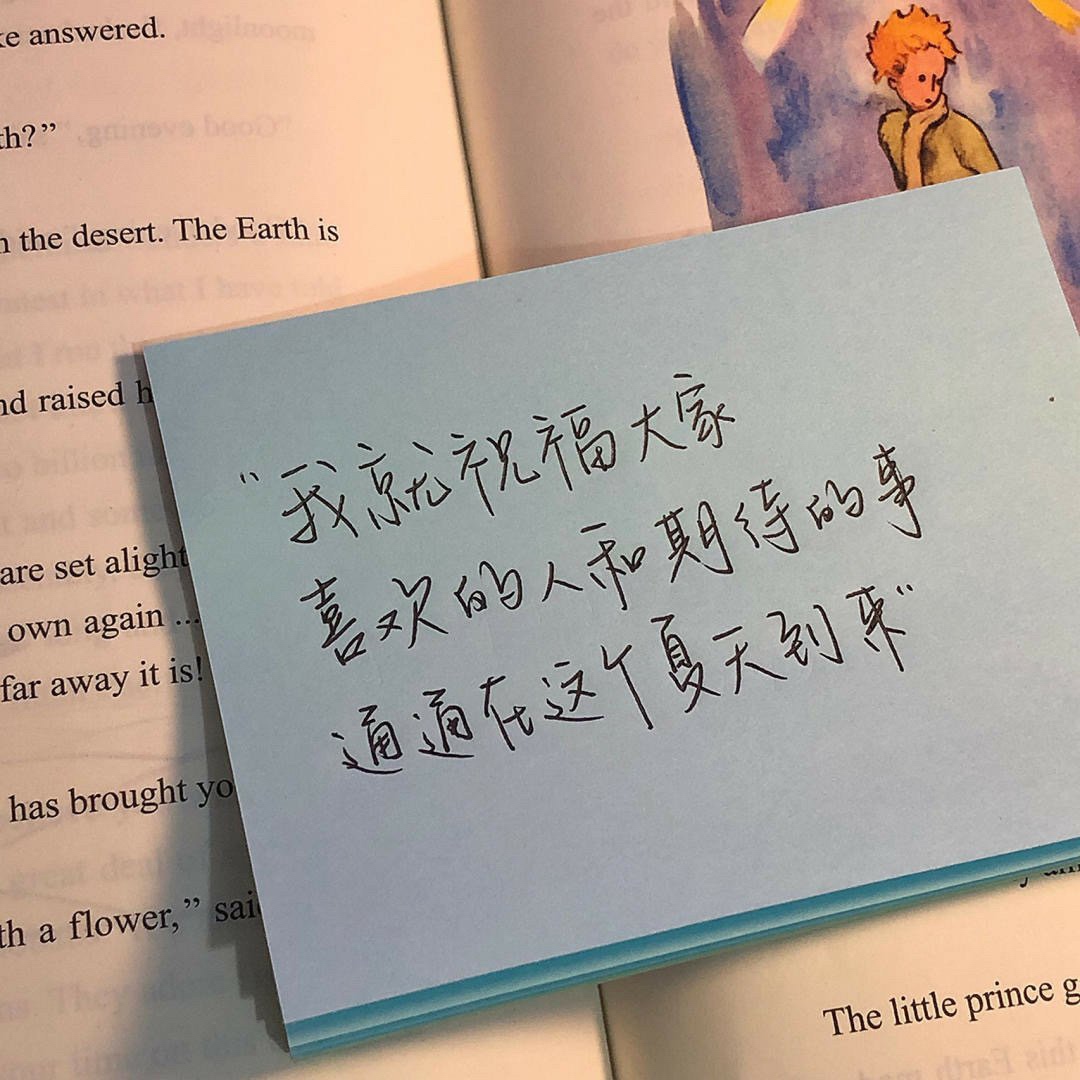 ke answered.
th?"
n the desert. The Earth is
nd raised h
are set alight
own again ...
far away it is!
has brought yo
th a flower," said
"我就祝福大家
喜欢的人和期待的事
通通在这个夏天到来"
The little prince g